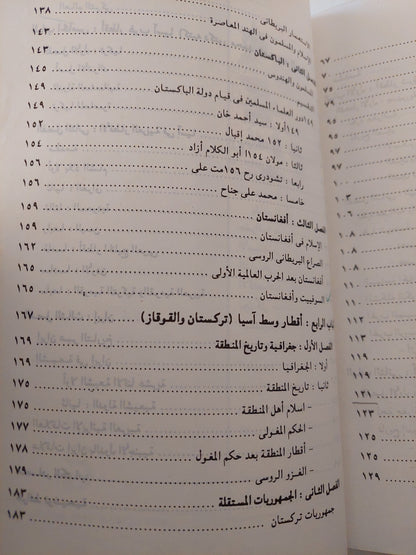 الاستعمار البريطانى ١٣٨
الإسلام والمسلمون فى الهند المعاصرة
الفصل الثانى : الباكستان ١٤٣
المسلمون والهندوس ١٤٣
التقسيم ١٤٥
١٤٩دور العلماء المسلمين فى قيام دولة الباكستان ١٤٩
١٤٩أولا : سيد أحمد خان ١٤٩
ثانيا : ١٥٢ محمد إقبال ١٥٢
ثالثا : مولان ١٥٤ا أبو الكلام أزاد ١٥٤
رابعا : تشودرى رح ١٥٦مت على ١٥٦
خامسا : محمد على جناح ١٥٦
الفصل الثالث : أفغانستان ١٥٩
الإسلام فى أفغانستان ١٥٩
الصراع البريطانى الروسى ١٦٢
أفغانستان بعد الحرب العالمية الأولى ١٦٥
السوفييت وأفغانستان ١٦٥
الباب الرابع : أقطار وسط آسيا (تركستان والقوقاز) ١٦٧
الفصل الأول : جغرافية وتاريخ المنطقة ١٦٩
أولا : الجغرافيا ١٦٩
ثانيا : تاريخ المنطقة ١٧٥
- اسلام أهل المنطقة ١٧٥
- الحكم المغولى ١٧٧
- أقطار المنطقة بعد حكم المغول ١٧٨
- الغزو الروسى ١٧٩
الفصل الثانى : الجمهوريات المستقلة ١٨٣
جمهوريات تركستان ١٨٣
٦٧
٧٠
٧٥
٧٩
٩٥
٩٧
٩٧
١٠٣
١٠٦
١٠٨
١٠٨
١٠٨
١١٩
١١٩
١٢١
١٢٣
١٢٥
١٢٥
١٢٩